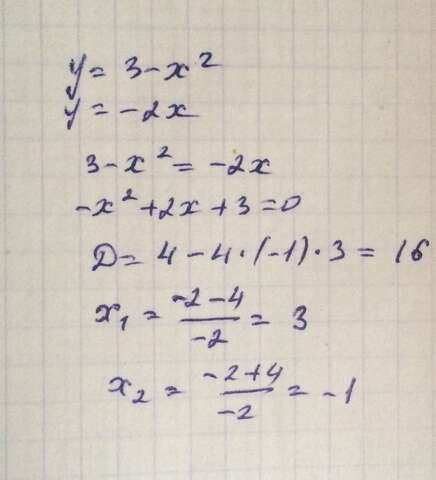 y = 3 - x²
y = -2x
3 - x² = -2x
-x² + 2x + 3 = 0
D = 4 - 4·(-1)·3 = 16
x₁ = (-2-4)/(-2) = 3
x₂ = (-2+4)/(-2) = -1